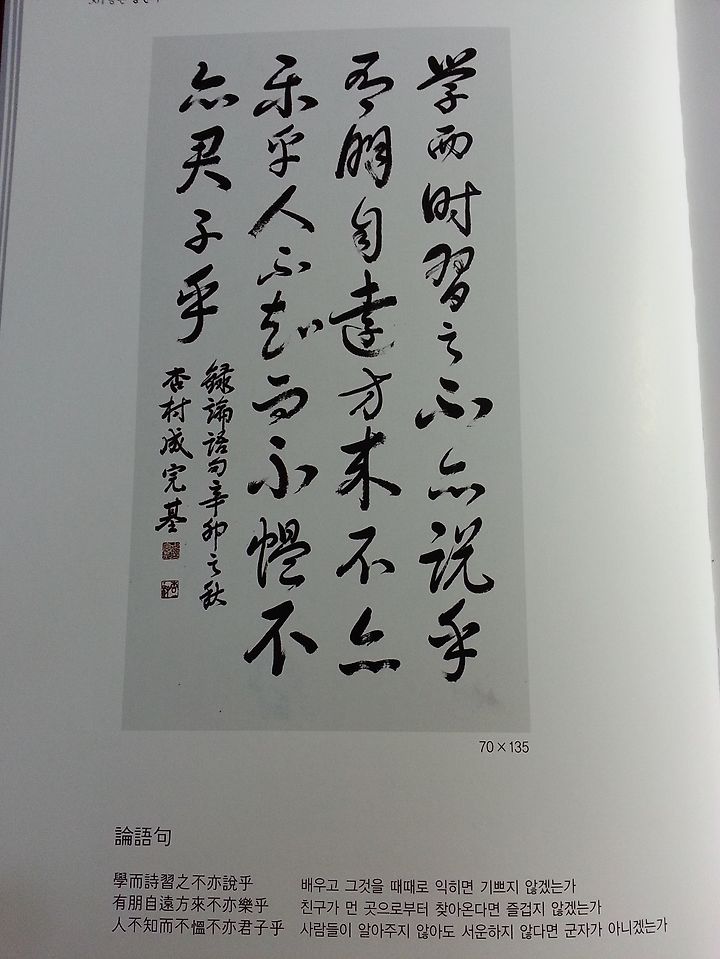 学而时習之不亦説乎
有朋自遠方来不亦
楽乎人不知而不慍不
亦君子乎
録論語句辛卯之秋
杏村成完基
70×135
論語句
學而詩習之不亦說乎 배우고 그것을 때때로 익히면 기쁘지 않겠는가
有朋自遠方來不亦樂乎 친구가 먼 곳으로부터 찾아온다면 즐겁지 않겠는가
人不知而不慍不亦君子乎 사람들이 알아주지 않아도 서운하지 않다면 군자가 아니겠는가